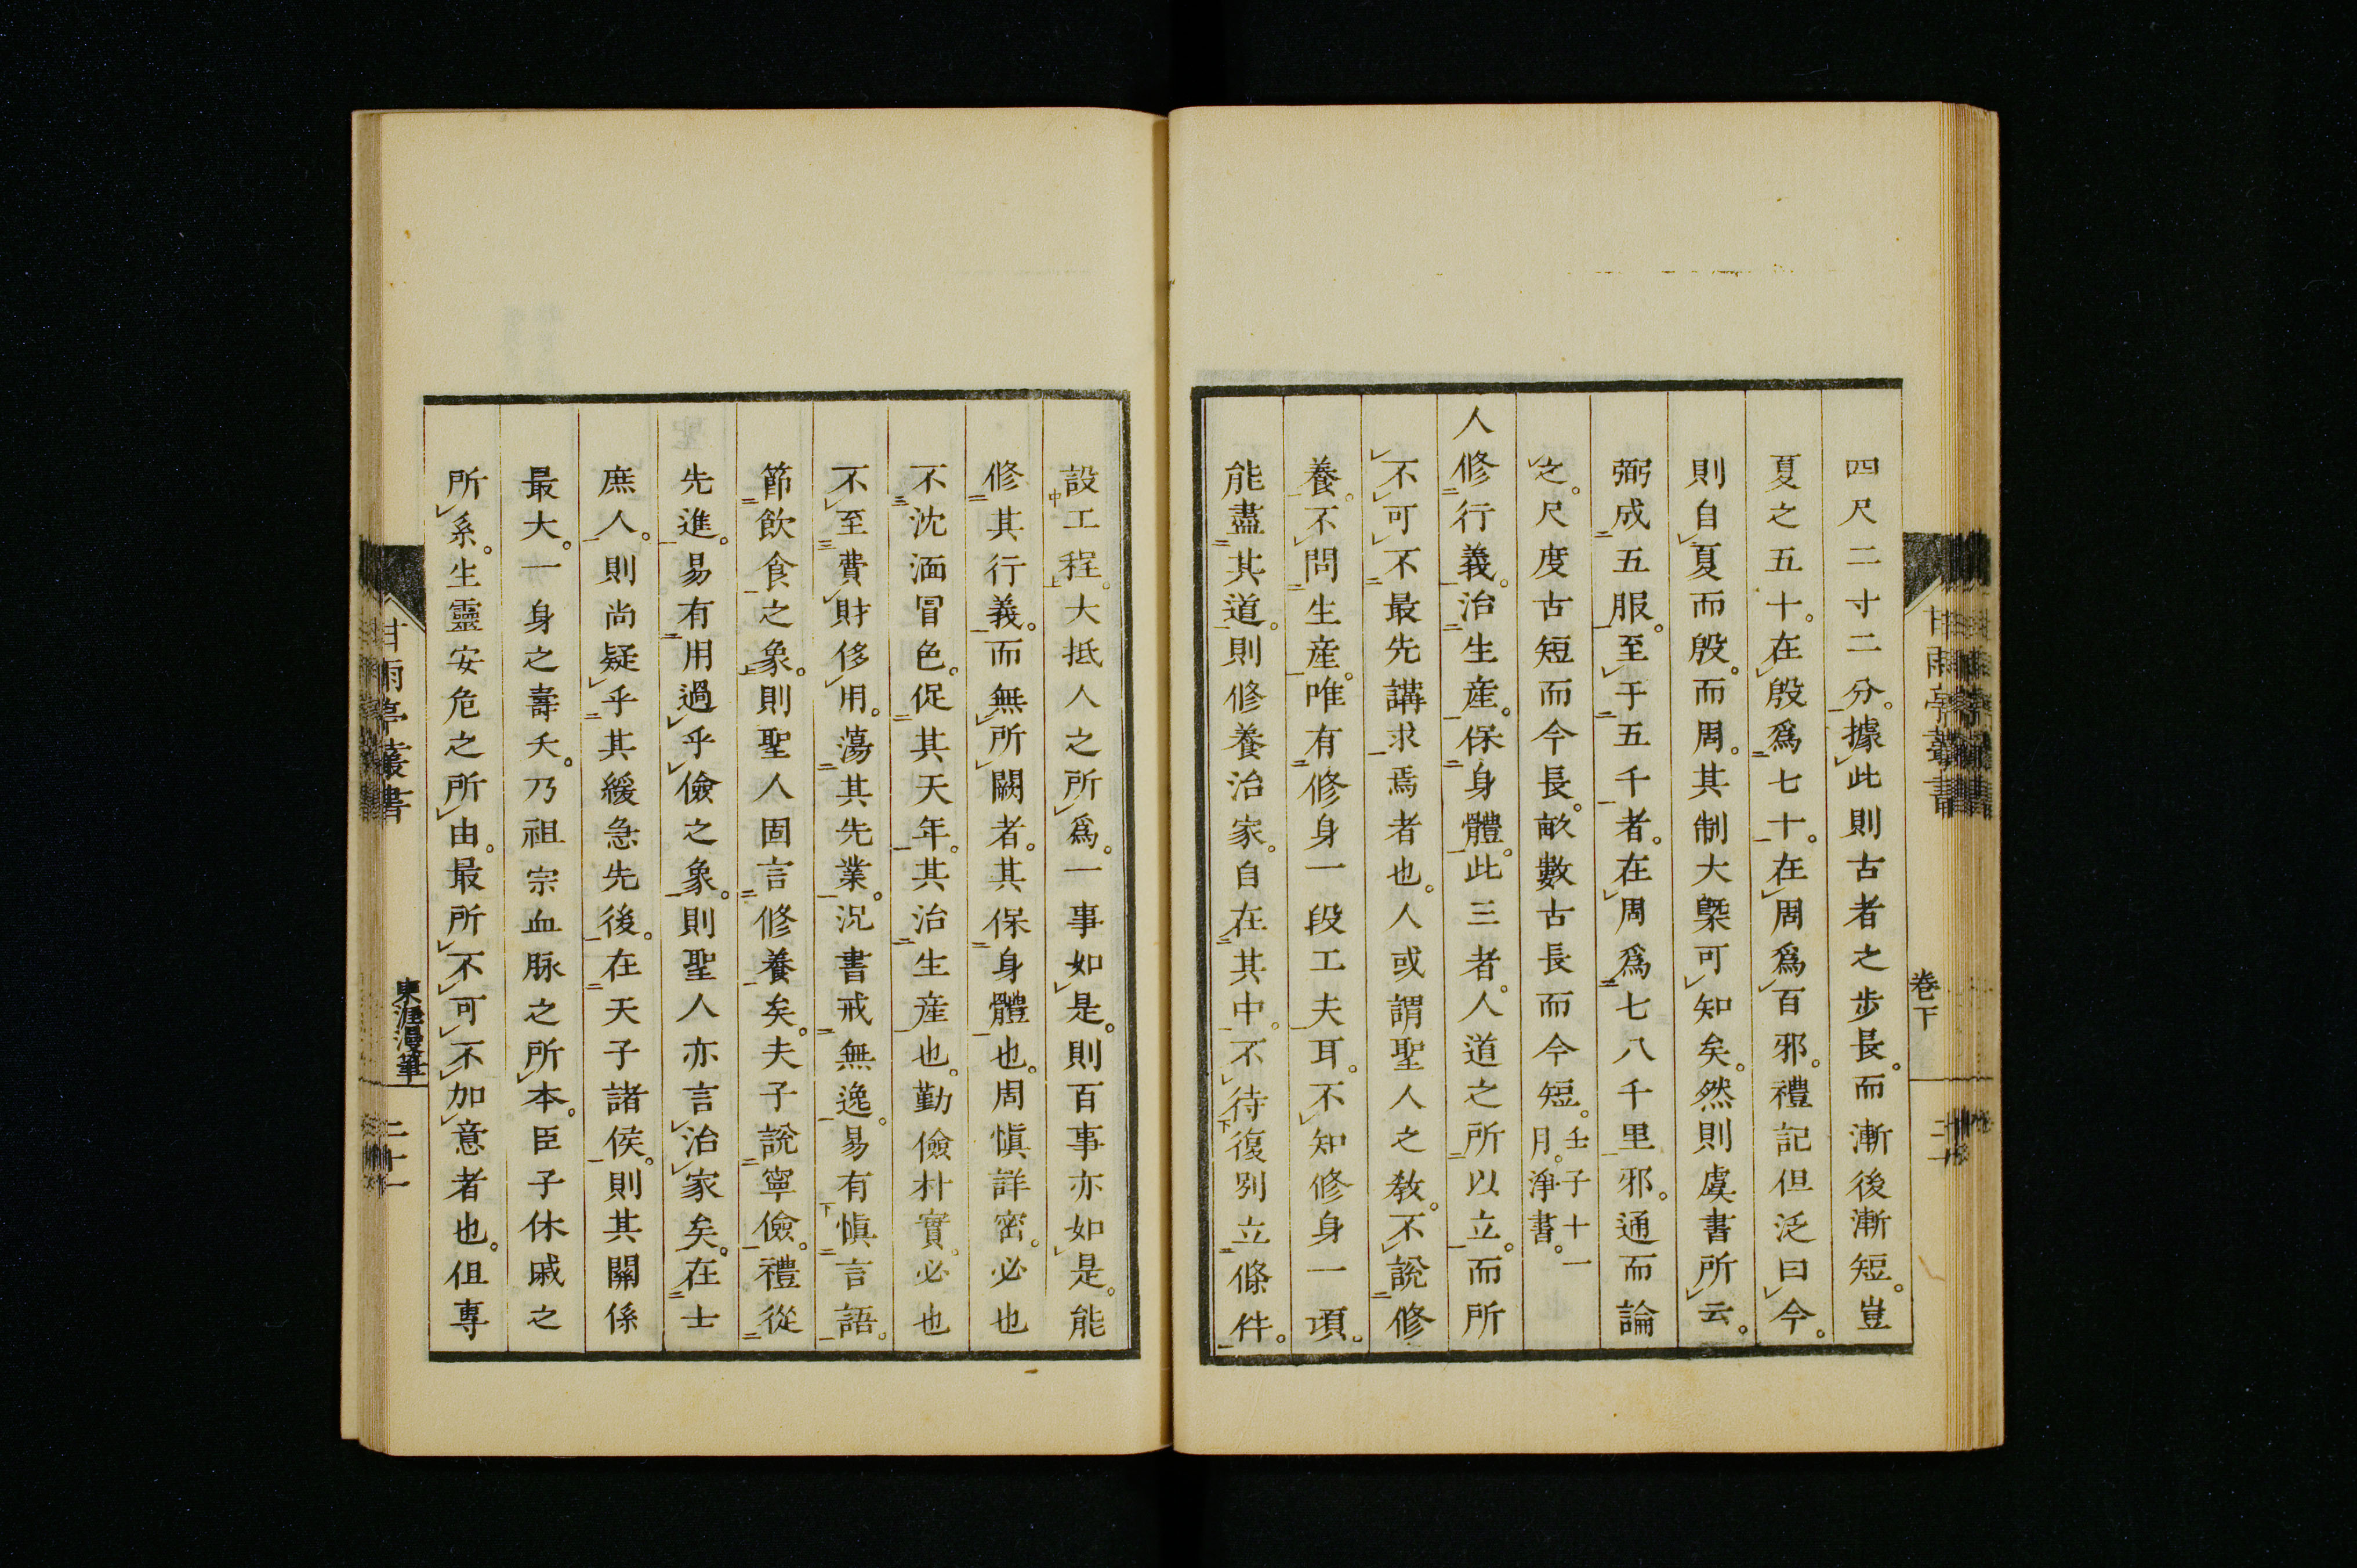 四尺二寸二分。據此則古者之步長。而漸後漸短。豈
夏之五十。在殷爲七十。在周爲百邪。禮記但泛曰今。
則自夏而殷。而周。其制大槩可知矣。然則虞書所云。
弼成五服。至于五千者。在周爲七八千里邪。通而論
之。尺度古短而今長。畝數古長而今短。壬子十一月。淨書。
人修行義。治生產。保身體。此三者。人道之所以立。而所
不可不最先講求焉者也。人或謂聖人之敎。不說修
養。不問生產。唯有修身一段工夫耳。不知修身一項。
能盡其道。則修養治家。自在其中。不待復別立條件。
設工程。大抵人之所爲。一事如是。則百事亦如是。能
修其行義。而無所闕者。其保身體也。周愼詳密。必也
不沈湎冒色。促其天年。其治生產也。勤儉朴實。必也
不至費財侈用。蕩其先業。況書戒無逸。易有愼言語。
節飮食之象。則聖人固言修養矣。夫子說寧儉。禮從
先進。易有用過乎儉之象。則聖人亦言治家矣。在士
庶人。則尚疑乎其緩急先後。在天子諸侯。則其關係
最大。一身之壽夭。乃祖宗血脉之所本。臣子休戚之
所系。生靈安危之所由。最所不可不加意者也。但專
甘雨亭叢書
卷下
東涯漫筆
二十一